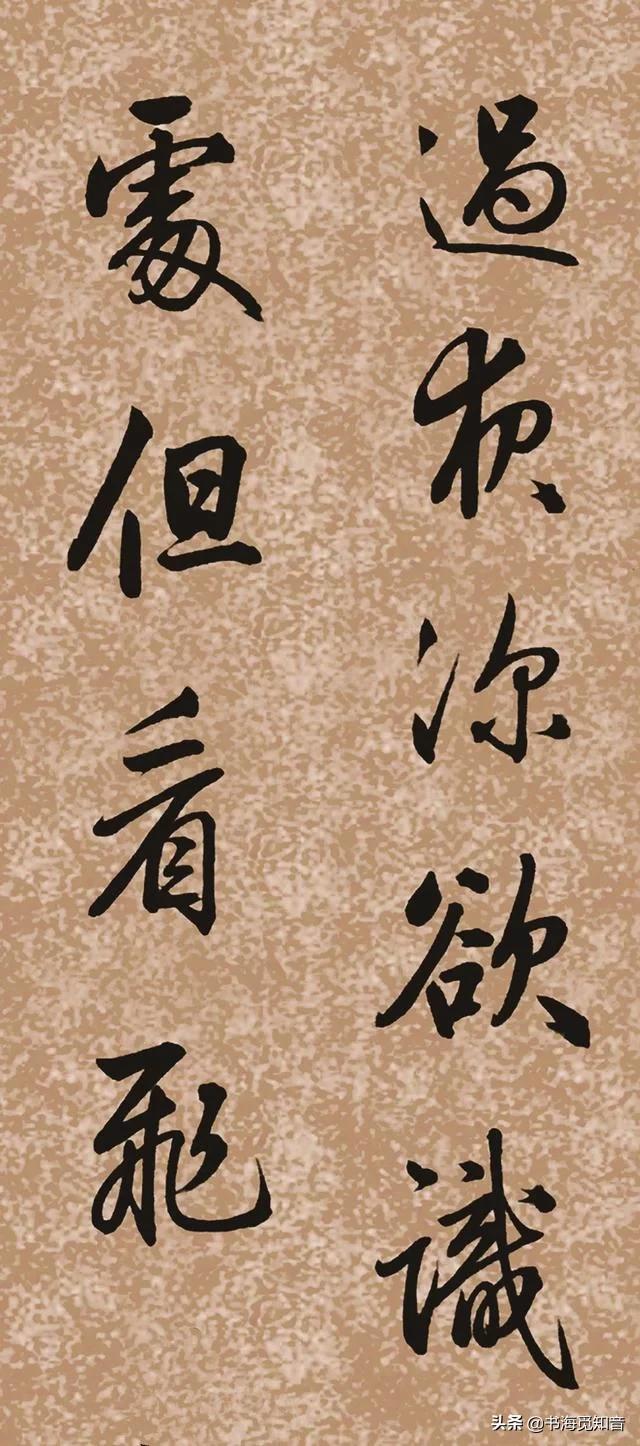 過夜深欲識
處但看飛
头条 @书海觅知音